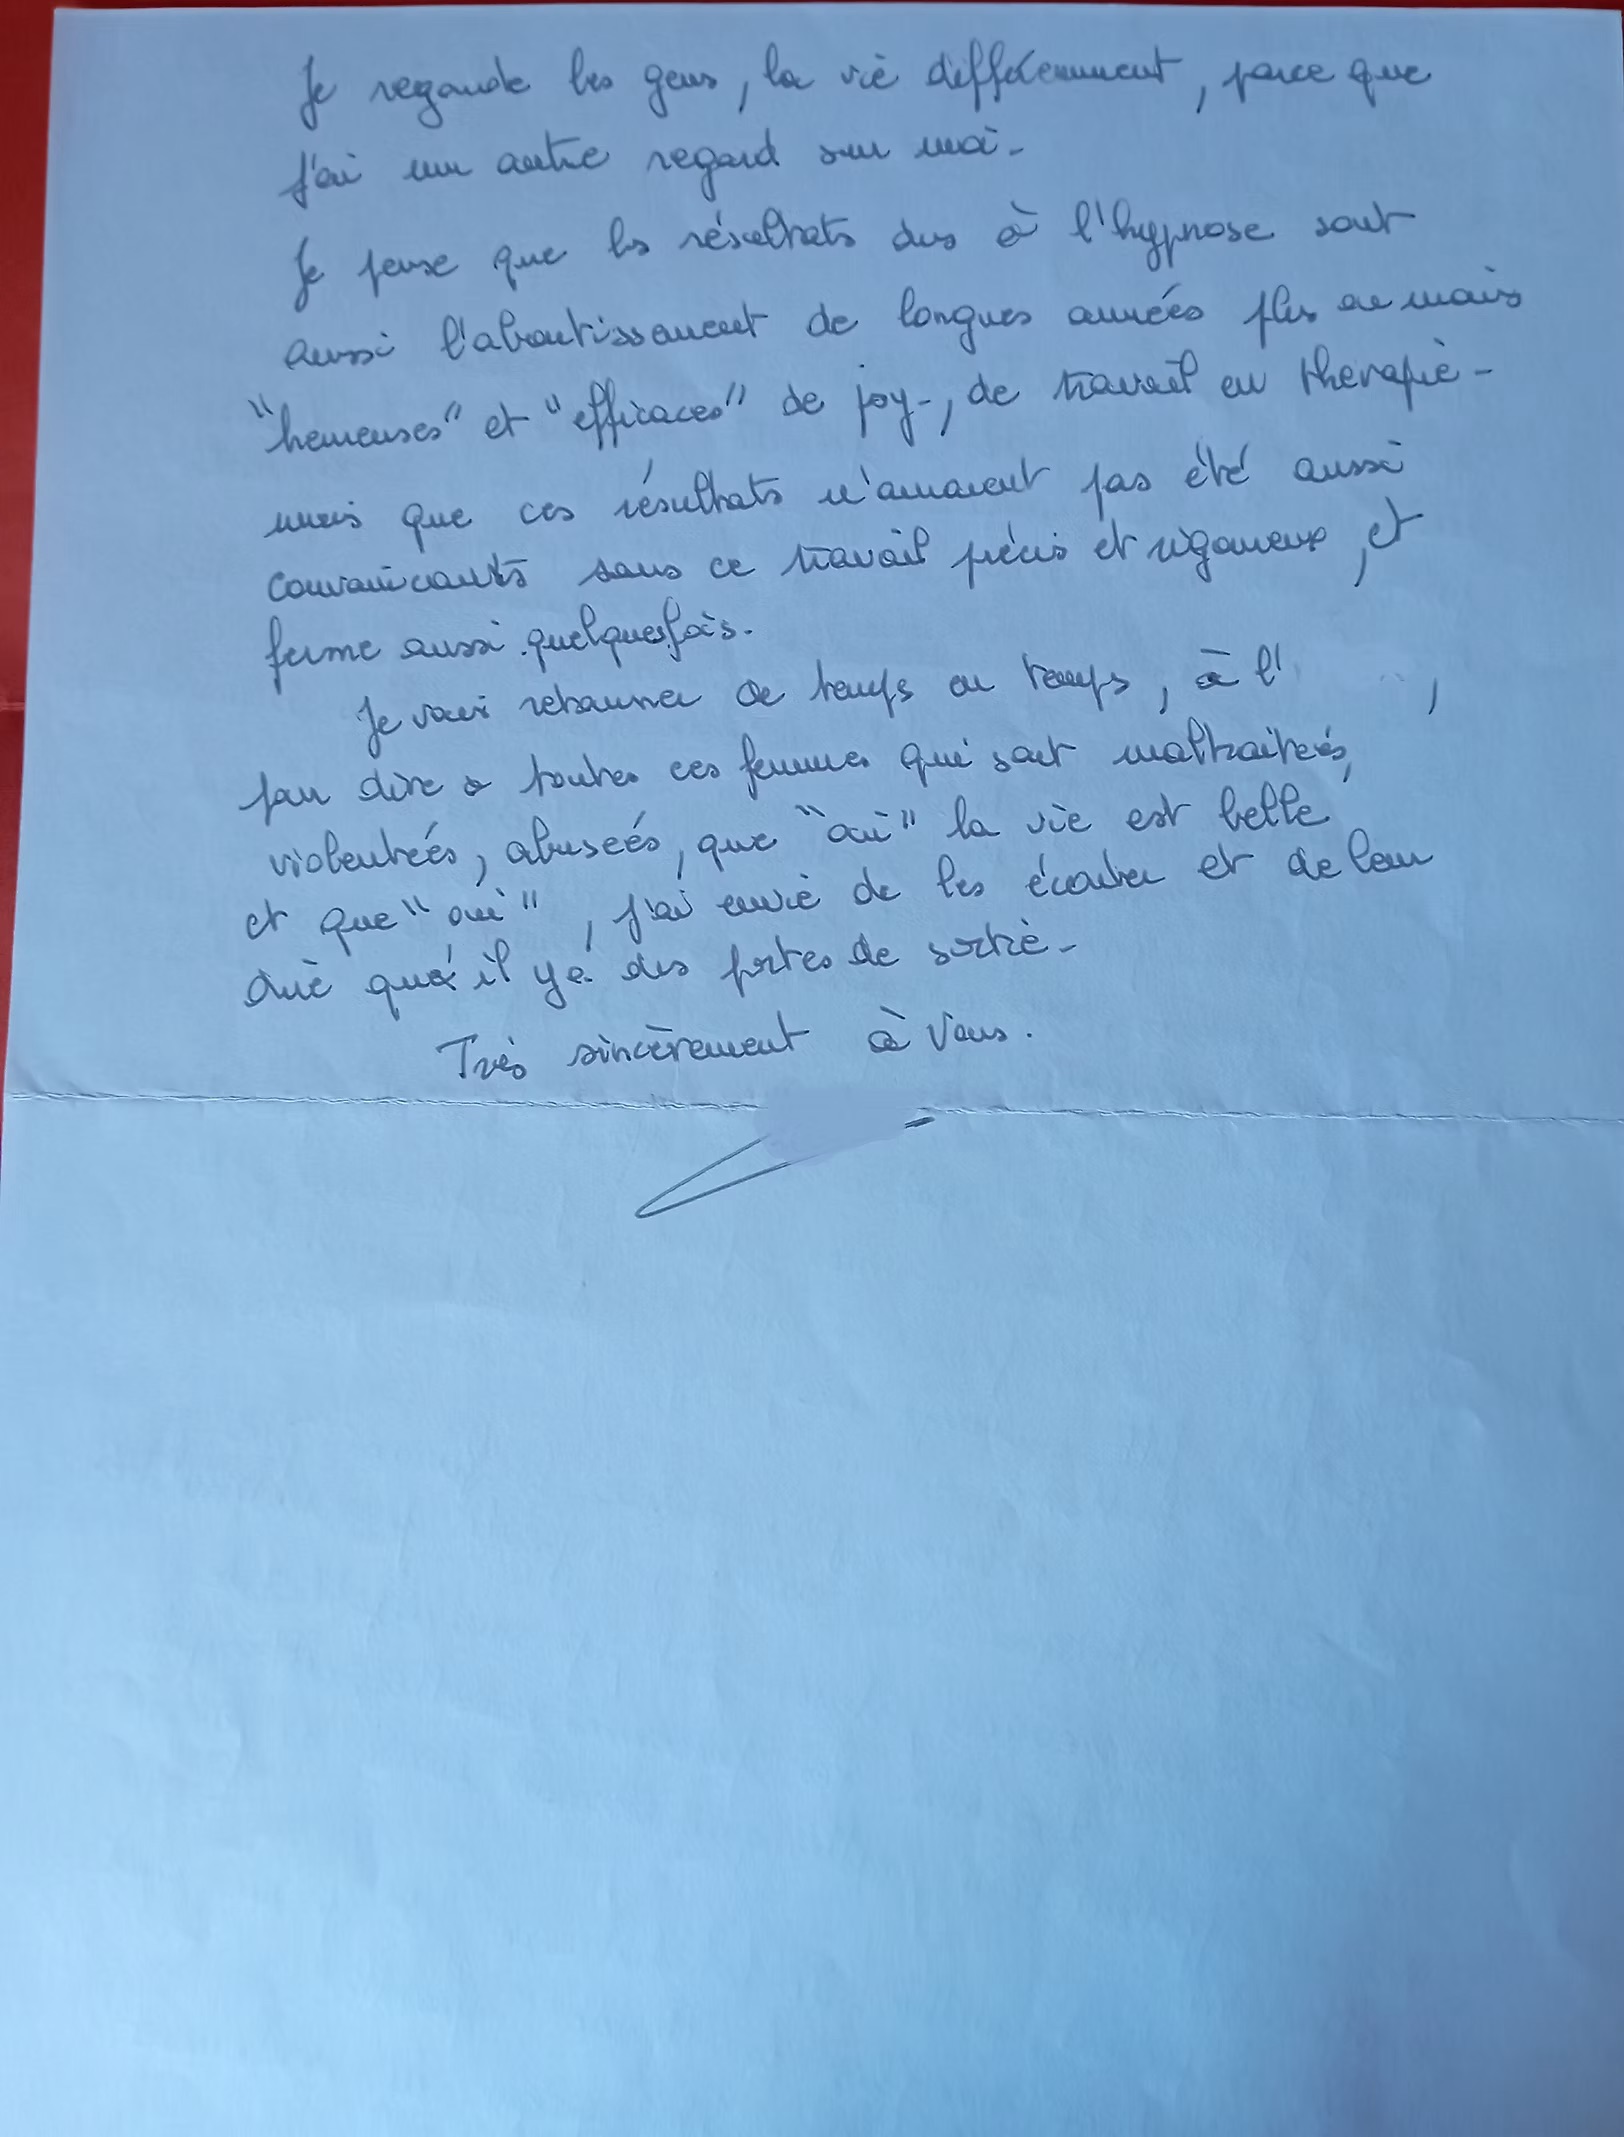 Je regarde les gens, la vie différemment, parce que
j'ai un autre regard sur moi -
Je pense que les résultats dus à l'hypnose sont
aussi l'aboutissement de longues années plus ou moins
"heureuses" et "efficaces" de psy-, de travail en thérapie -
mais que ces résultats n'auraient pas été aussi
convaincants sans ce travail précis et rigoureux, et
ferme aussi quelquesfois.
Je vais retourner de temps en temps, à l' ,
pour dire à toutes ces femmes qui sont maltraitées,
violentées, abusées, que "oui" la vie est belle
et que "oui", j'ai envie de les écouter et de leur
dire qu'il y a des portes de sortie -
Très sincèrement à Vous.